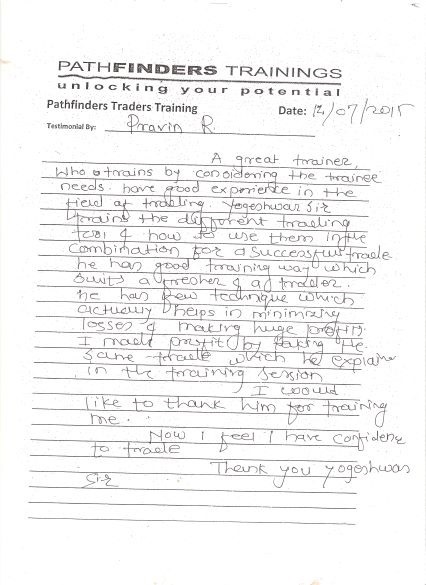 PATHFINDERS TRAININGS
unlocking your potential
Pathfinders Traders Training
Date: 12/07/2015
Testimonial By: Pravin R.
A great trainer,
Who trains by considering the trainee
needs. have good experience in the
field of trading. Yogeshwar Sir
trains the different trading
tool & how to use them in the
combination for a successful trade
he has good training way which
suits a fresher & a trader.
he has few technique which
actually helps in minimizing
losses & making huge profit.
I made profit by taking the
same trade which he explaine
in the training session
I would
like to thank him for training
me.
Now i feel I have confidenc
to trade
Thank you yogeshwar
Sir